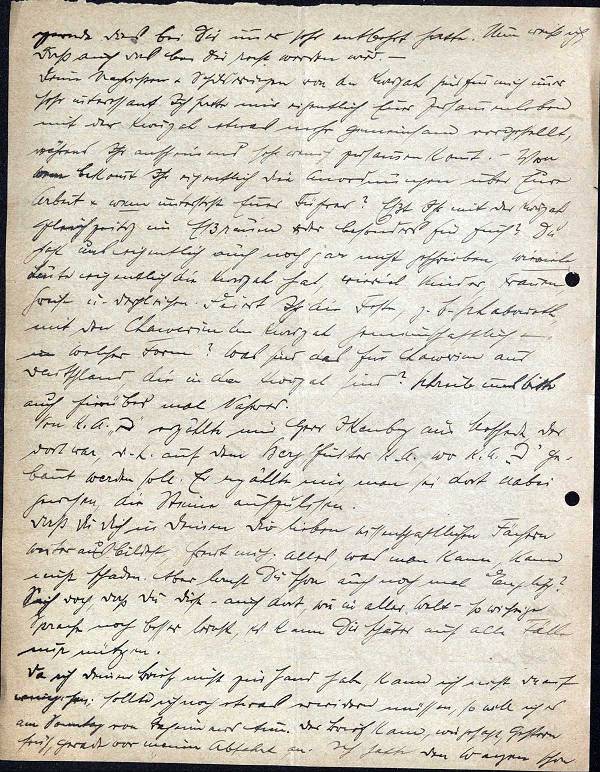 gerade das bei Dir immer sehr entbehrt hatte. Nun weiß ich
daß auch das bei Dir recht werden wird. —
Deine Nachrichten u. Schilderungen von der Kwuzah sind für mich immer
sehr interessant. Ich hatte mir eigentlich Euer Zusammenleben
mit der Kwuzah etwas mehr gemeinsam vorgestellt,
während Ihr anscheinend sehr wenig zusammen kommt. — Von
wem bekommt Ihr eigentlich die Anordnungen über Eure
Arbeit u. wem untersteht Euer Führer? Eßt Ihr mit der Kwuzah
gleichzeitig im Eßraum oder besonders für Euch? Du
hast uns eigentlich auch noch gar nicht geschrieben, wieviele
Leute eigentlich die Kwuzah hat, wieviel Kinder, Frauen
u. dergleichen. Feiert Ihr die Feste, z. B. Schabuoth
mit den Chawerim der Kwuzah gemeinschaftlich —
in welcher Form? Was sind das für Chawerim aus
Deutschland die in der Kwuzah sind? Schreibe uns bitte
auch hierüber mal Näheres.
Von K.A. erzählte mir Herr aus der
dort war, d. h. auf dem Berg hinter K.A. wo K.A. ge-
baut werden soll. Er erzählte mir man sei dort dabei
gewesen, die Steine aufzulesen.
Daß Du Dich in Deinen Dir lieben wissenschaftlichen Fächern
weiter ausbildest, freut mich. Alles was man kann, kann
nicht schaden. Aber lernst Du schon auch noch mal Englisch?
Sieh doch, daß Du Dich - auch dort, wie in aller Welt - so wichtige
Sprache noch besser lernst, es kann Dir später auf alle Fälle
nur nützen.
Da ich Deinen Brief nicht zur Hand habe, kann ich nicht darauf
eingehen, sollte ich noch etwas erwidern müssen, so will ich es
am Sonntag von daheim aus tun. Der Brief kam, wie gesagt, gestern
früh, gerade vor meiner Abfahrt an. Ich hatte den Wagen schon